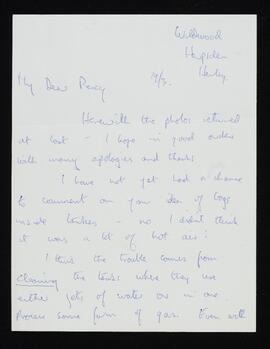 Wildwood
Harpsden
Henley.
My Dear Percy
19/3.
Herewith the photos returned
at last – I hope in good order
with many apologies and thanks
I have not yet had a chance
to comment on your idea of bags
inside tankers – no I didn't think
it was a lot of hot air!
I think the trouble comes from
cleaning the tanks where they use
either jets of water or in one
process some form of gas. Even with